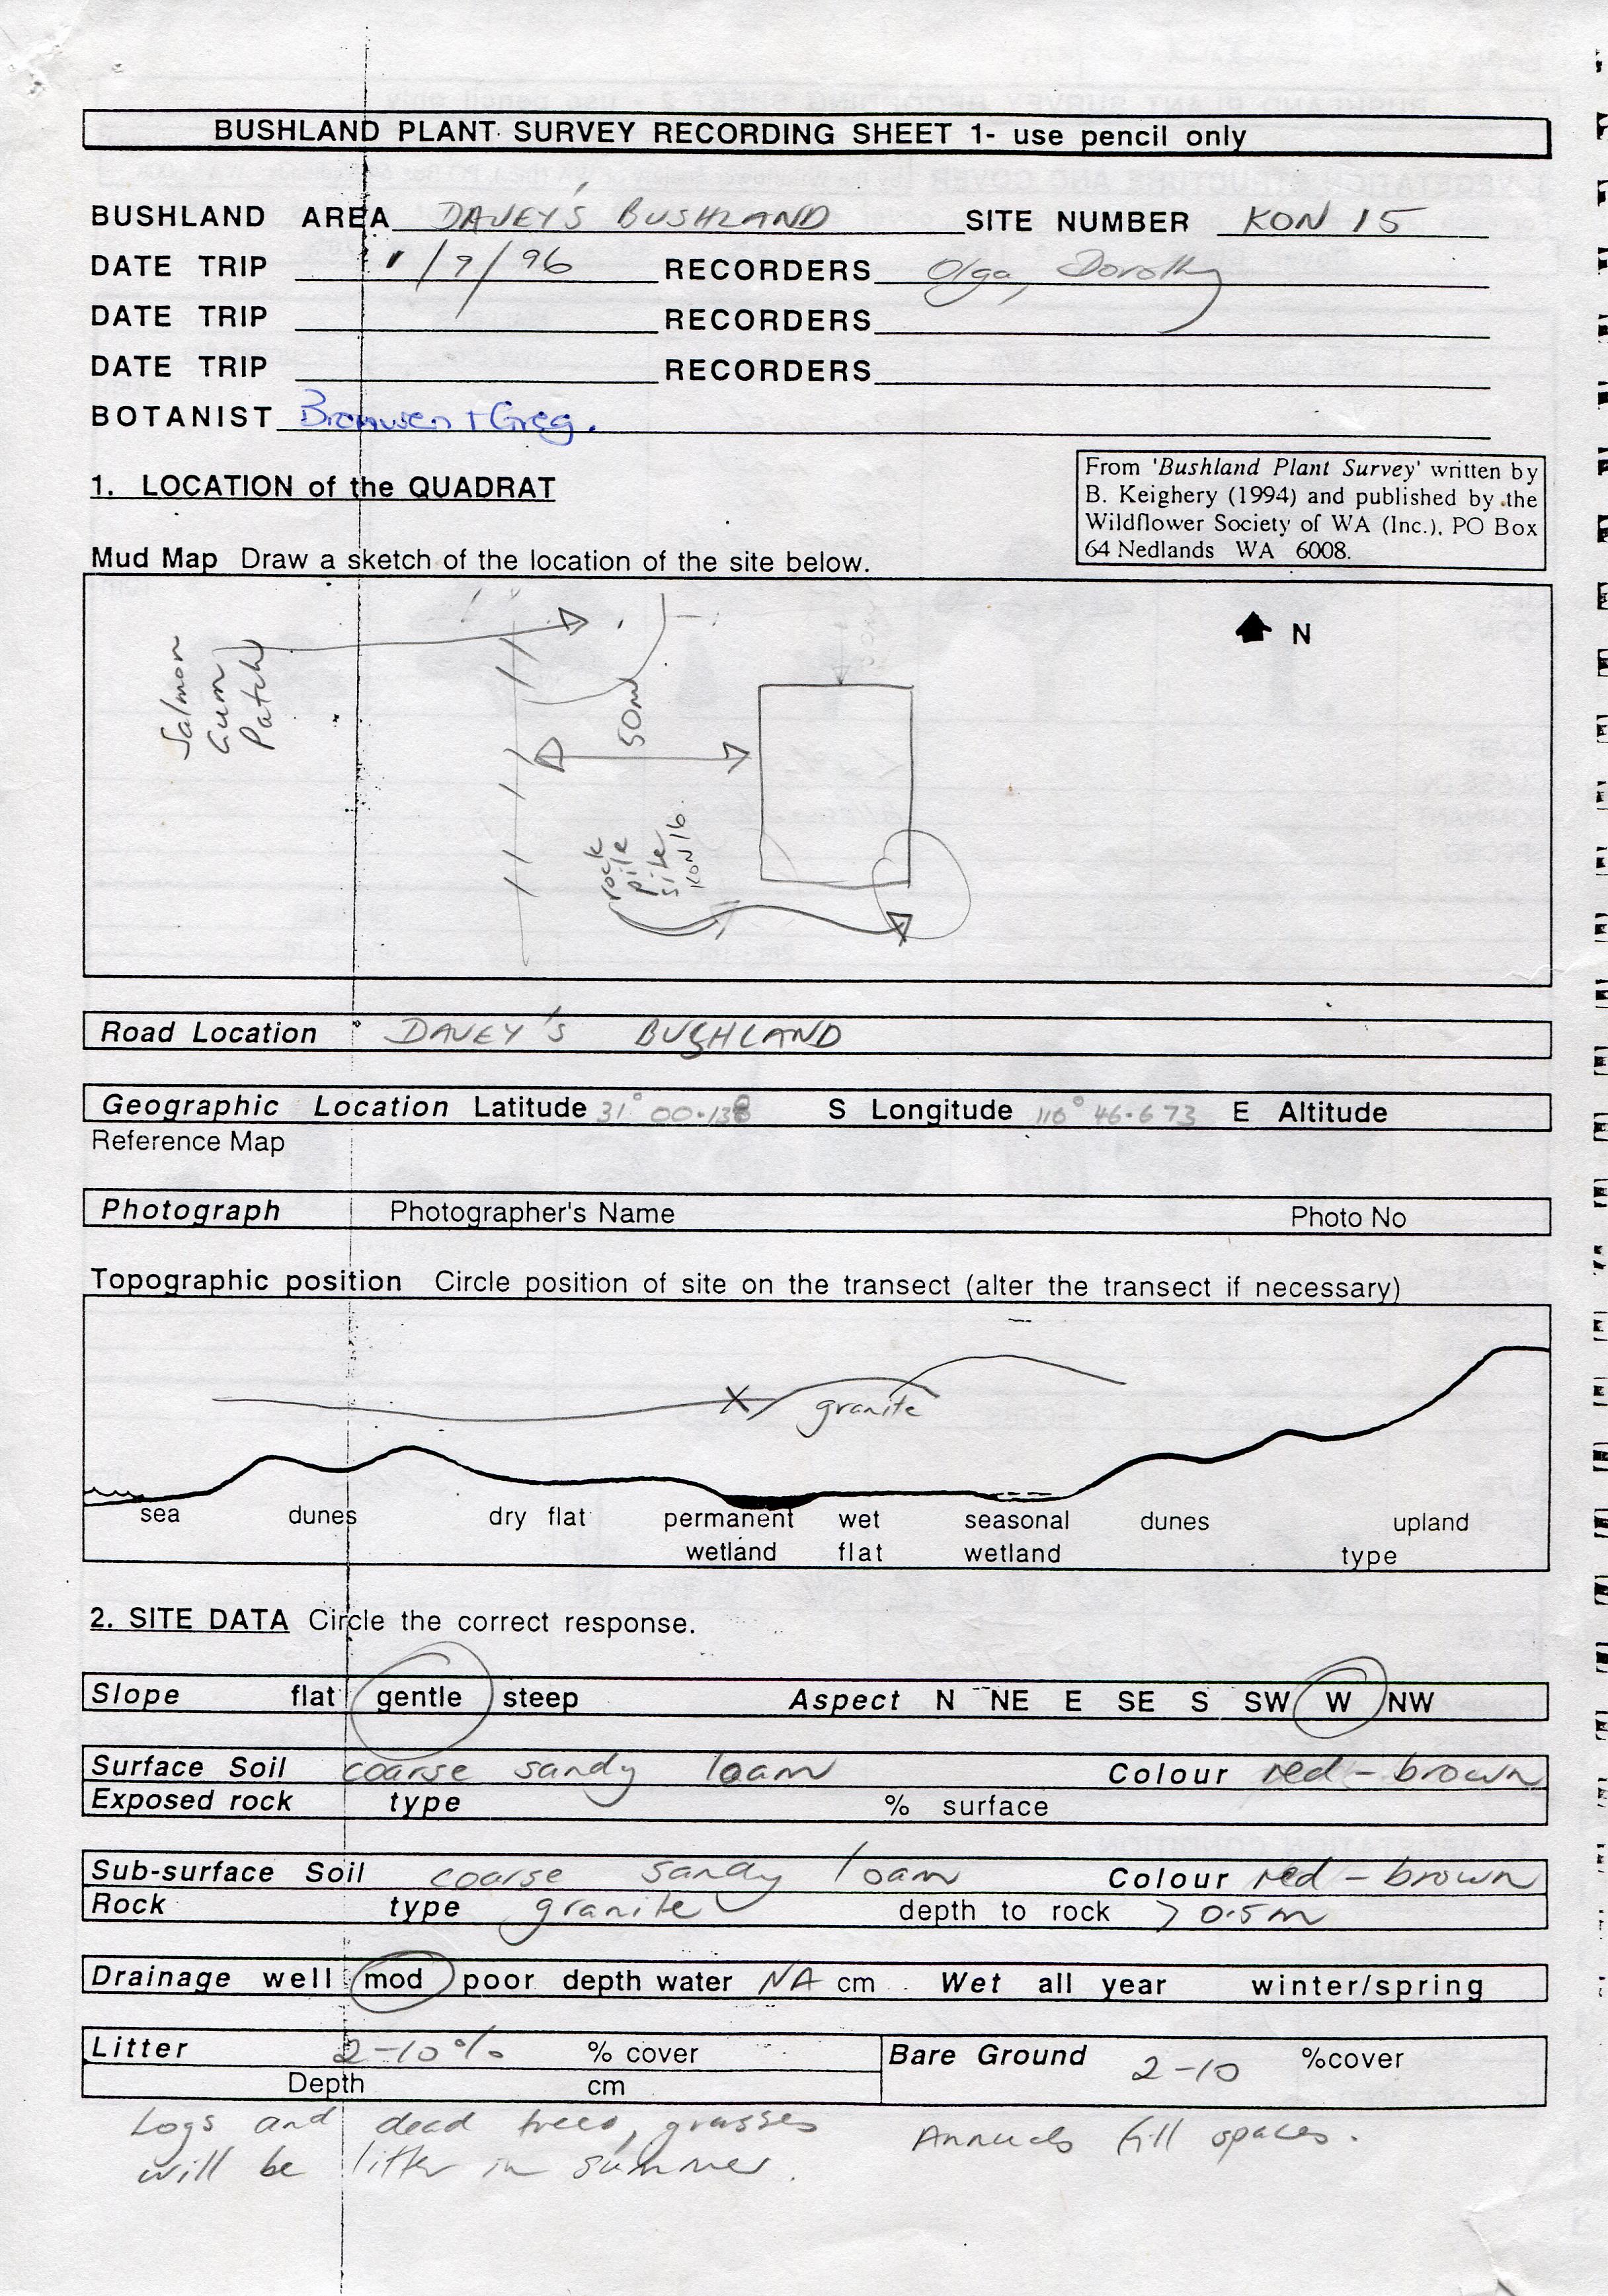 BUSHLAND PLANT SURVEY RECORDING SHEET 1- use pencil only
BUSHLAND AREA DAVEY'S BUSHLAND SITE NUMBER KON 15
DATE TRIP 1/9/96 RECORDERS Olga, Dorothy
DATE TRIP RECORDERS
DATE TRIP RECORDERS
BOTANIST Bronwen + Greg.
1. LOCATION of the QUADRAT
From 'Bushland Plant Survey' written by
B. Keighery (1994) and published by the
Wildflower Society of WA (Inc.), PO Box
64 Nedlands WA 6008.
Mud Map Draw a sketch of the location of the site below.
N
Salmon
Gum
Patch
50m
50m
rock
pile
site
KON 16.
Road Location DAVEY'S BUSHLAND
Geographic Location Latitude 31° 00.138 S Longitude 116° 46.673 E Altitude
Reference Map
Photograph Photographer's Name Photo No
Topographic position Circle position of site on the transect (alter the transect if necessary)
X granite
sea dunes dry flat permanent wet seasonal dunes upland
wetland flat wetland type
2. SITE DATA Circle the correct response.
Slope flat gentle steep Aspect N NE E SE S SW W NW
Surface Soil coarse sandy loam Colour red - brown
Exposed rock type % surface
Sub-surface Soil coarse sandy loam Colour red - brown
Rock type granite depth to rock > 0.5m
Drainage well mod poor depth water NA cm Wet all year winter/spring
Litter 2-10% % cover Bare Ground 2-10 %cover
Depth cm
Logs and dead trees, grasses Annuals fill spaces.
will be litter in summer.